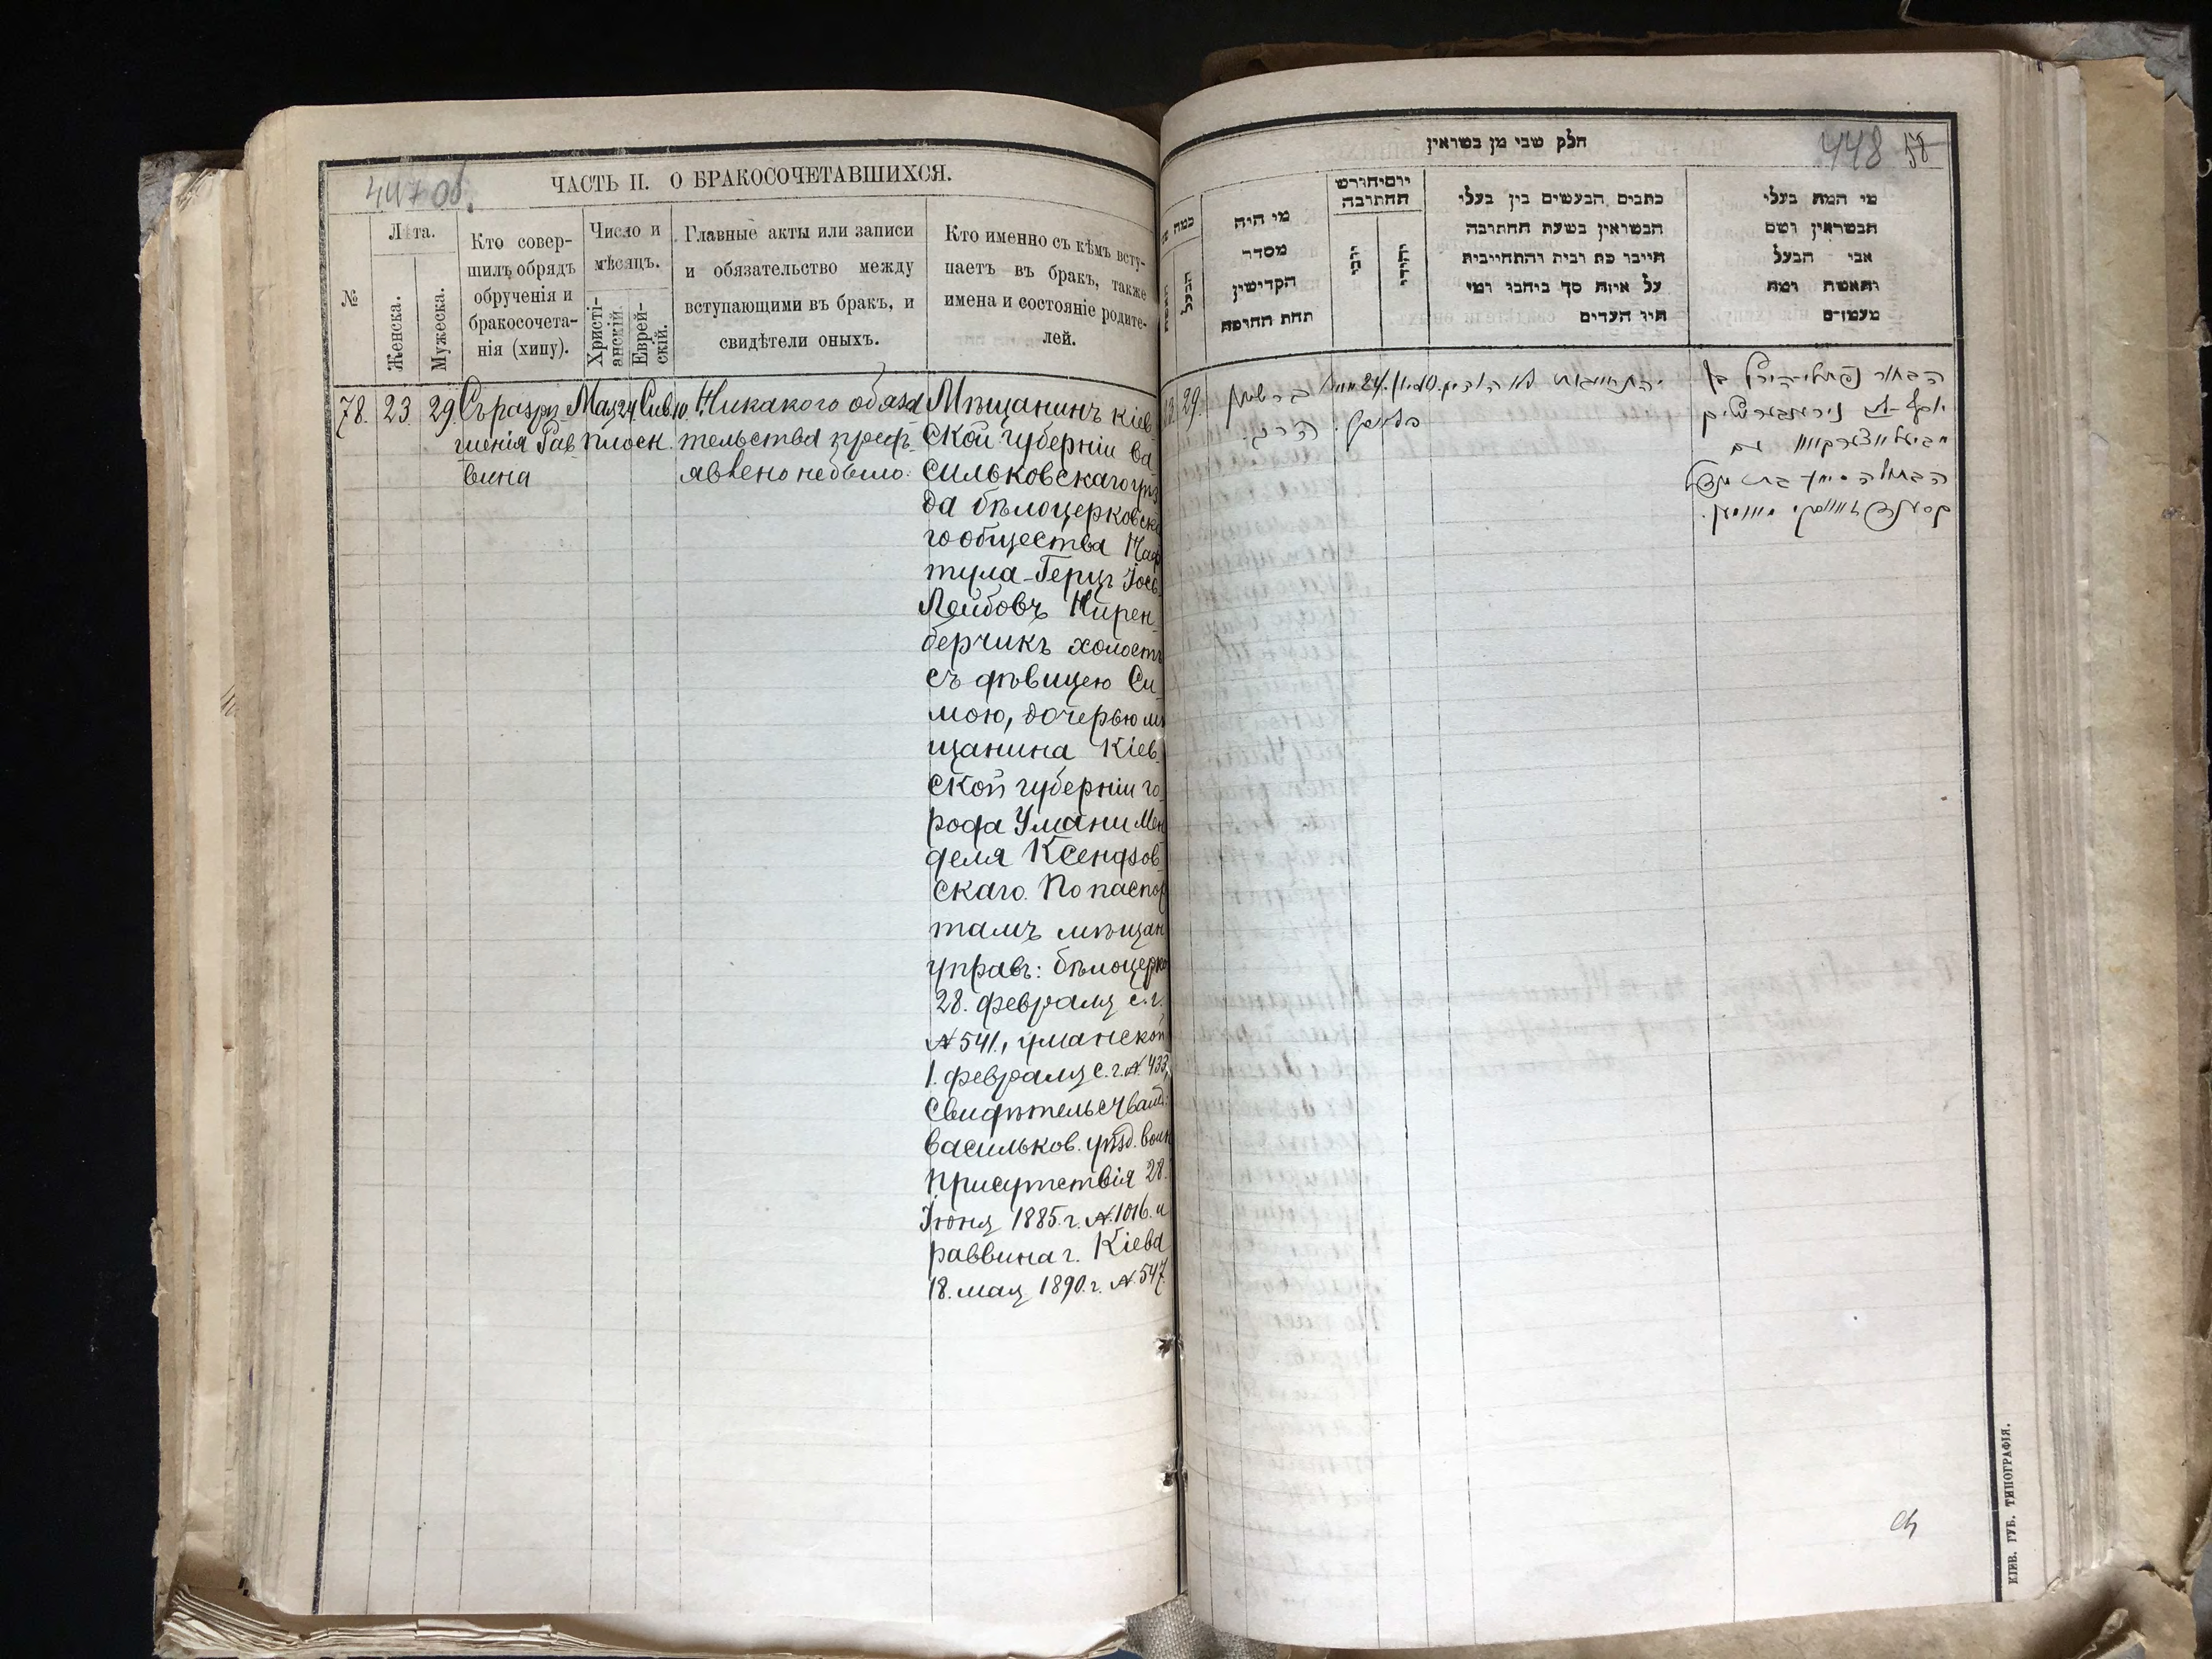 447 об.
ЧАСТЬ II. О БРАКОСОЧЕТАВШИХСЯ.
№
Лѣта.
Женска.
Мужеска.
Кто совер-
шилъ обрядъ
обрученія и
бракосочета-
нія (хипу).
Число и
мѣсяцъ.
Христі-
анскій.
Еврей-
скій.
Главные акты или записи
и обязательство между
вступающими въ бракъ, и
свидѣтели оныхъ.
Кто именно съ кѣмъ всту-
паетъ въ бракъ, также
имена и состояніе родите-
лей.
78.
23.
29.
Съ разрѣ-
шенія Рав-
вина
Мая 24
Сив. 10.
плоск.
Никакого обяза
тельства предъ
явлено не было.
Мѣщанинъ Кіев
ской губерніи Ва
сильковскаго уѣз
да бѣлоцерковска
го общества Наф
тула-Герцъ Іось
Лейбовъ Нирен
берчикъ холостъ
съ дѣвицею Си
мою, дочерью мѣ
щанина Кіев
ской губерніи го
рода Умани Мен
деля Ксендзов
скаго. По паспор
тамъ мѣщан
управъ: бѣлоцерко
28. февраля с.г.
№ 541., уманской
1. февраля с.г. № 433,
Свидѣтельствамъ:
Васильков. уѣзд. воин
Присутствія 28.
Іюня 1885.г. № 1016. и
раввина г. Кіева
18. мая 1890.г. № 547.
חלק שני מן נשואין
448
58
כמה
הבעל
מי היה
מסדר
הקדישין
תחת החופה
יום וחודש
החתונה
רוסי
יהודי
כתבים הנעשים בין בעלי
הנשואין בשעת החתונה
חייבו כת רבית והתחייבית
על איזה סך ביחבו ומי
היו העדים
מי המה בעלי
הנשואין ושם
אבי הבעל
והאשה ומה
מעמדם
29.
ברשות
הרב.
24.
הבחור נפתלי הירץ בן
נירענבערטשיק
עם
הבתולה סימא בת מענדיל
КІЕВ. ГУБ. ТИПОГРАФІЯ.